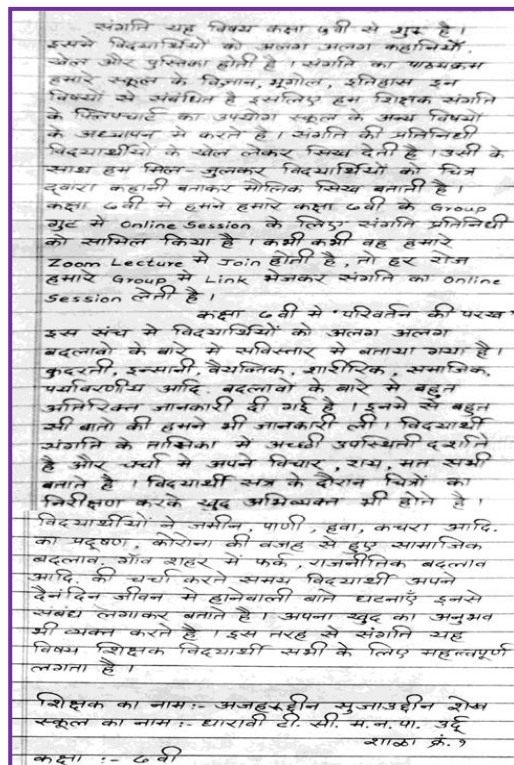 संगति यह विषय कक्षा ५वी से शुरु है।
इसमे विद्यार्थियों को अलग अलग कहानियाँ,
खेल और पुस्तिका होती है। संगति का पाठ्यक्रम
हमारे स्कूल के विज्ञान, भूगोल, इतिहास इन
विषयों से संबंधित है इसलिए हम शिक्षक संगति
के फ्लिपचार्ट का उपयोग स्कूल के अन्य विषयों
के अध्यापन मे करते है। संगति की प्रतिनिधी
विद्यार्थीयों के खेल लेकर सिख देती है। उसी के
साथ हम मिल-जुलकर विद्यार्थियों को चित्र
द्वारा कहानी बताकर मौलिक सिख बताती है।
कक्षा ७वी मे हमने हमारे कक्षा ७वी के Group
गुट मे Online Session के लिए संगति प्रतिनिधी
को सामिल किया है। कभी कभी वह हमारे
Zoom Lecture मे Join होती है, तो हर रोज
हमारे Group मे Link भेजकर संगति का Online
Session लेती है।
कक्षा ७वी मे 'परिवर्तन की परख'
इस संच मे विद्यार्थियों को अलग अलग
बदलावो के बारे मे सविस्तार मे बताया गया है।
कुदरती, इन्सानी, वैयक्तिक, शारीरिक, समाजिक,
पर्यावरणीय आदि. बदलावो के बारे मे बहुत
अतिरिक्त जानकारी दी गई है। इनमे से बहुत
सी बातो की हमने भी जानकारी ली। विद्यार्थी
संगति के तासिका मे अच्छी उपस्थिती दर्शाते
है और चर्चा मे अपने विचार, राय, मत सभी
बताते है। विद्यार्थी सत्र के दौरान चित्रों का
निरीक्षण करके खुद अभिव्यक्त भी होते है।
विद्यार्थीयों ने जमीन, पाणी, हवा, कचरा आदि.
का प्रदूषण, कोरोना की वजह से हुए सामाजिक
बदलाव, गाँव शहर में फर्क, राजनीतिक बदलाव
आदि. की चर्चा करते समय विद्यार्थी अपने
दैनंदिन जीवन मे होनेवाली बाते घटनाएँ इनसे
संबंध लगाकर बताते है। अपना खुद का अनुभव
भी व्यक्त करते है। इस तरह से संगति यह
विषय शिक्षक विद्यार्थी सभी के लिए महत्त्वपूर्ण
लगता है।
शिक्षक का नाम :- अजहरुद्दीन सुजाउद्दीन शेख
स्कूल का नाम :- धारावी टी. सी. म.न.पा. उर्दू
शाळा क्रं. १
कक्षा :- ७ वी